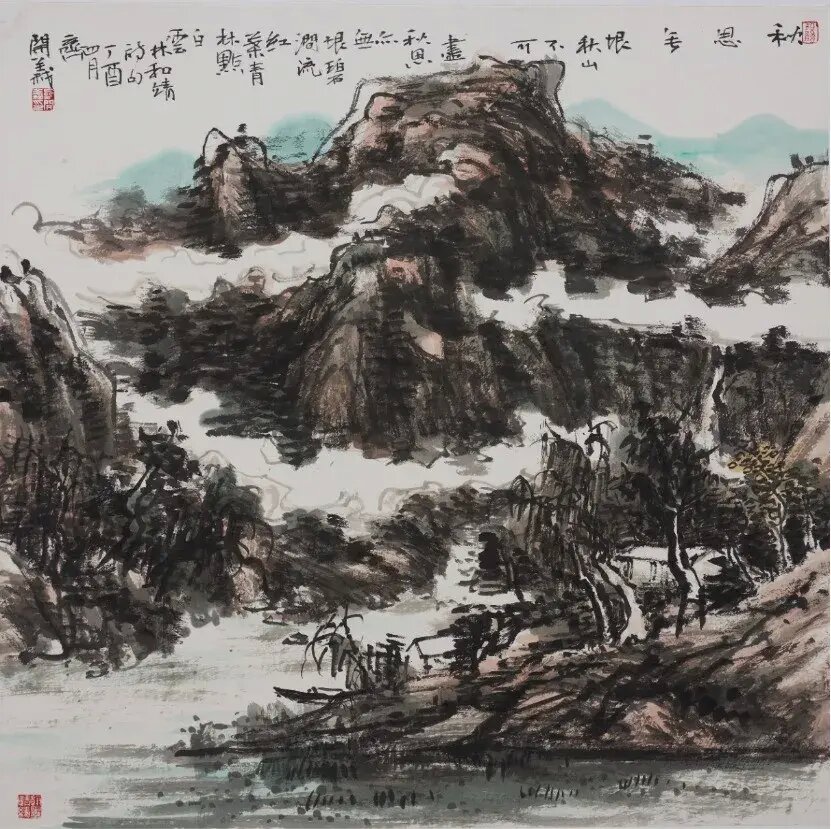 秋思无垠
秋山不可盡
秋思亦無垠
碧澗流紅葉
青林點白雲
林和靖詩句
丁酉四月
齊開義